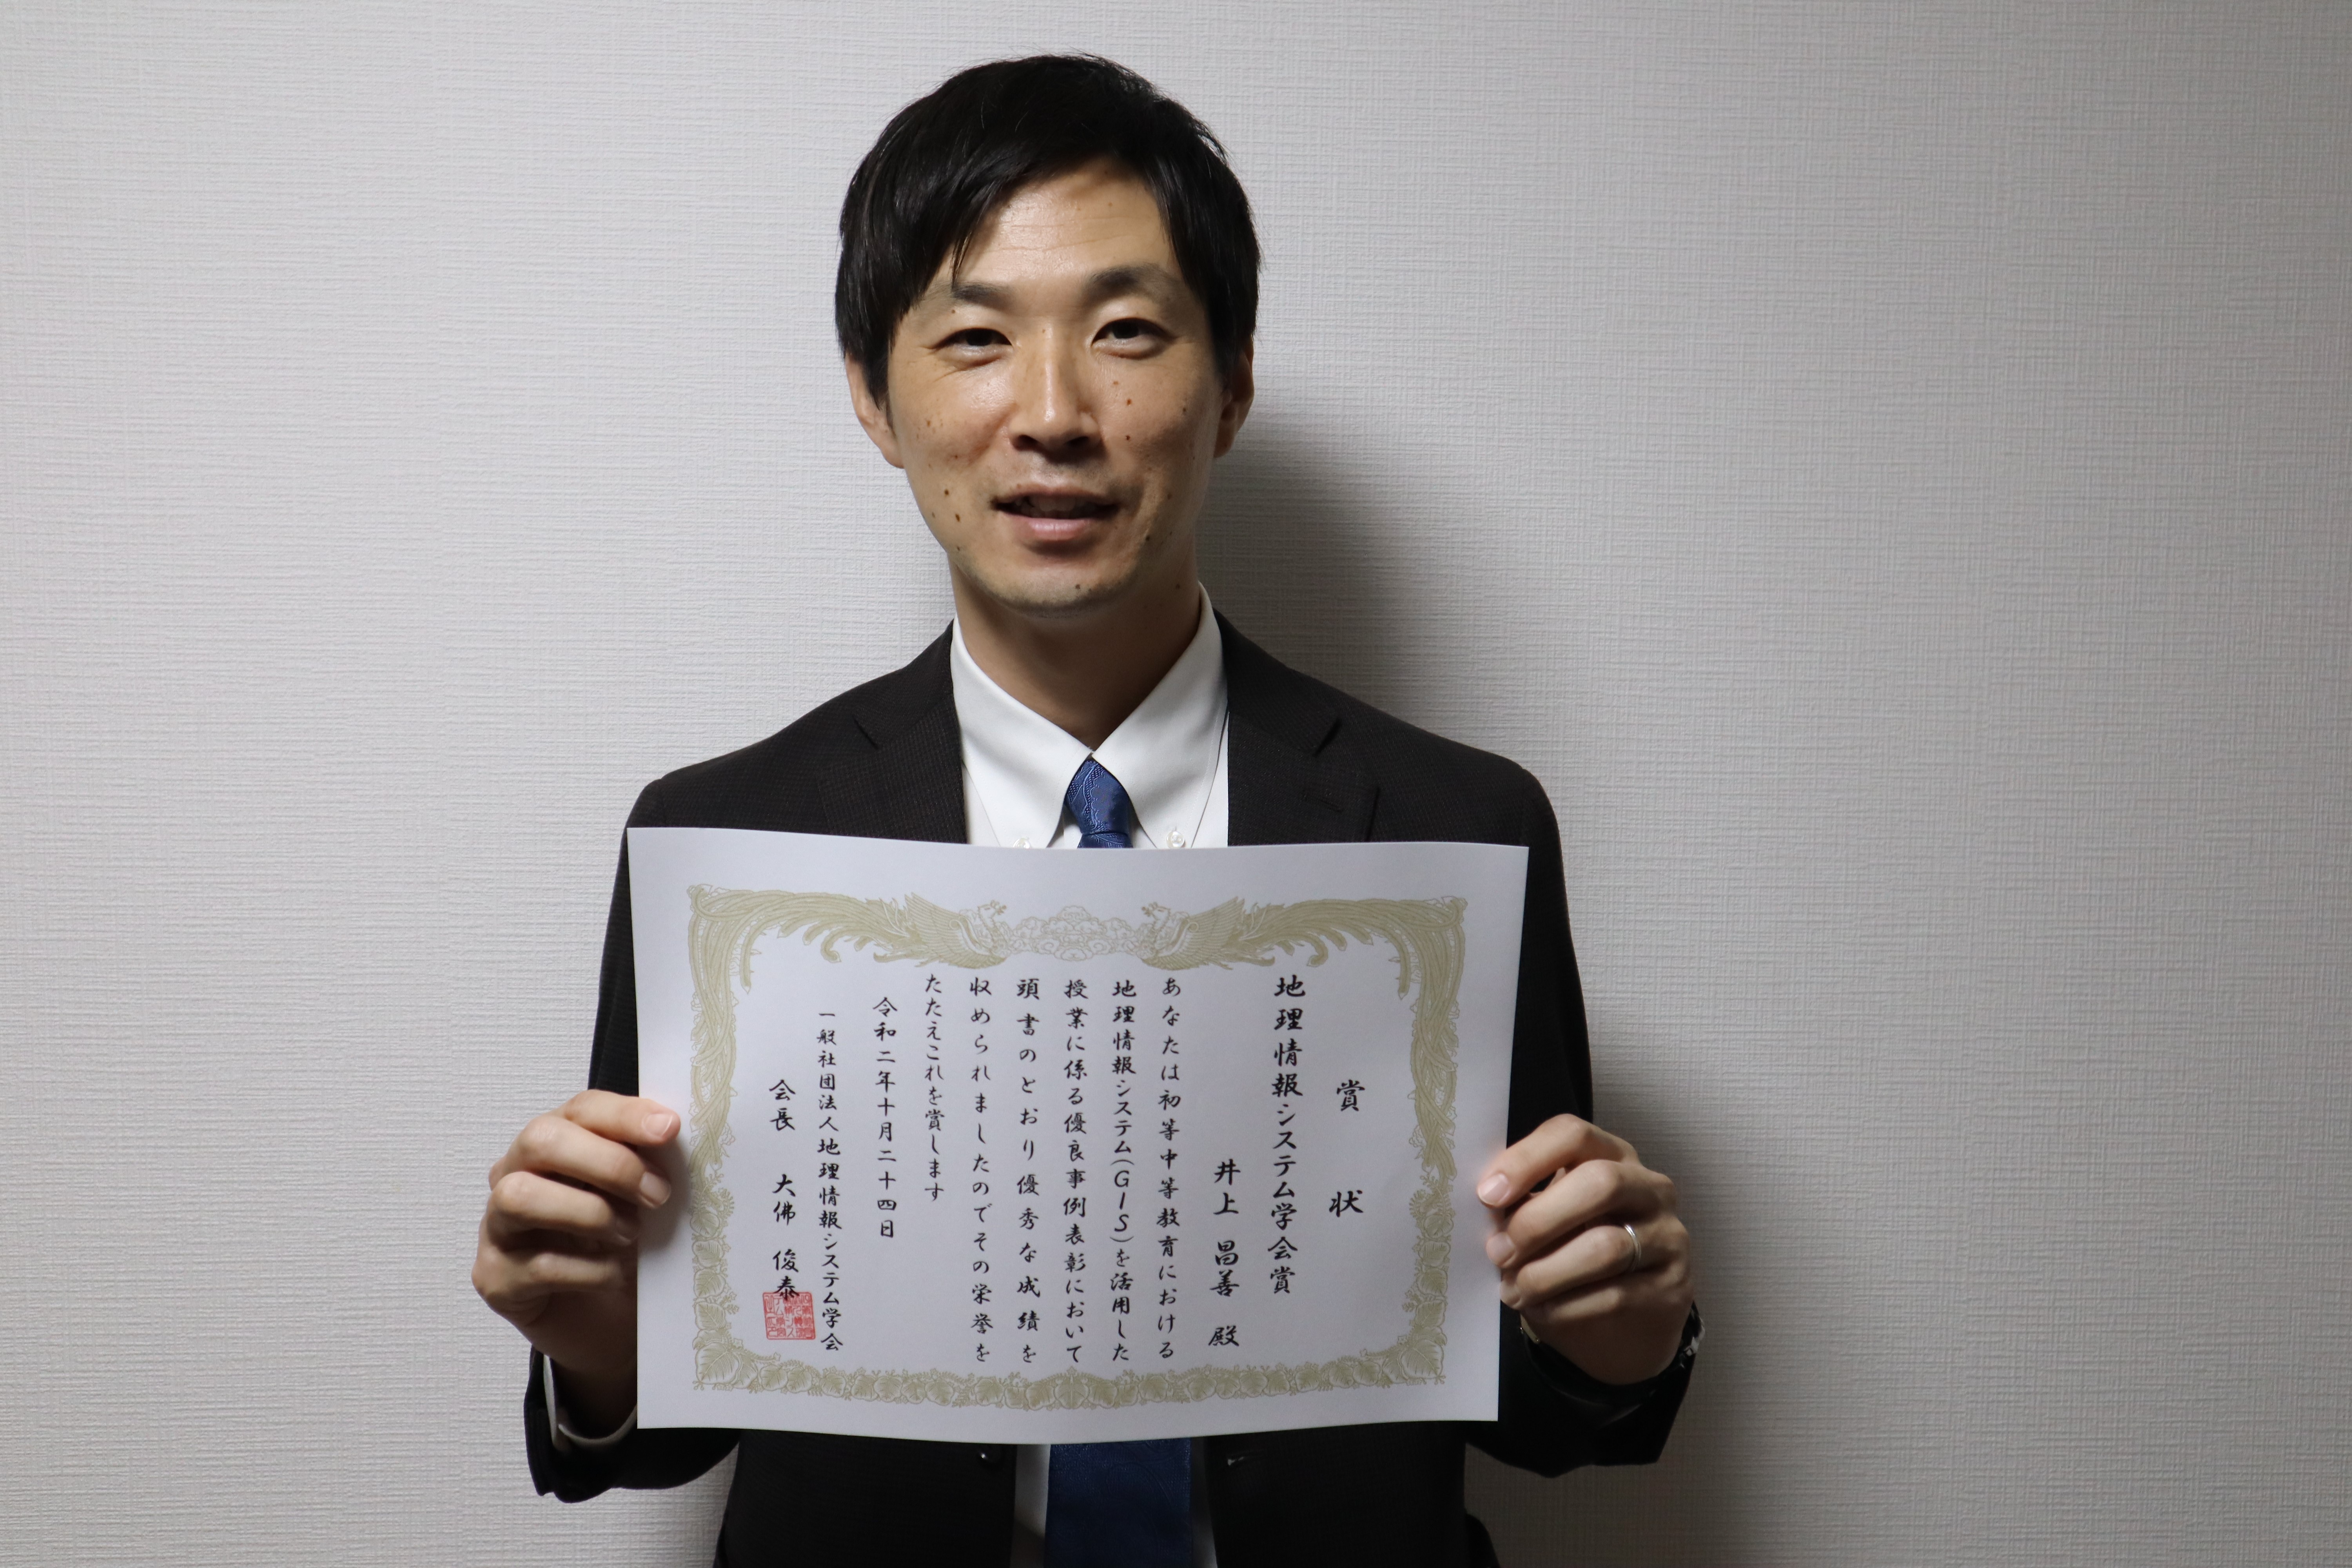 賞状
地理情報システム学会賞
井上 昌善 殿
あなたは初等中等教育における
地理情報システム(GIS)を活用した
授業に係る優良事例表彰において
頭書のとおり優秀な成績を
収められましたのでその栄誉を
たたえこれを賞します
令和二年十月二十四日
一般社団法人地理情報システム学会
会長 大佛 俊泰